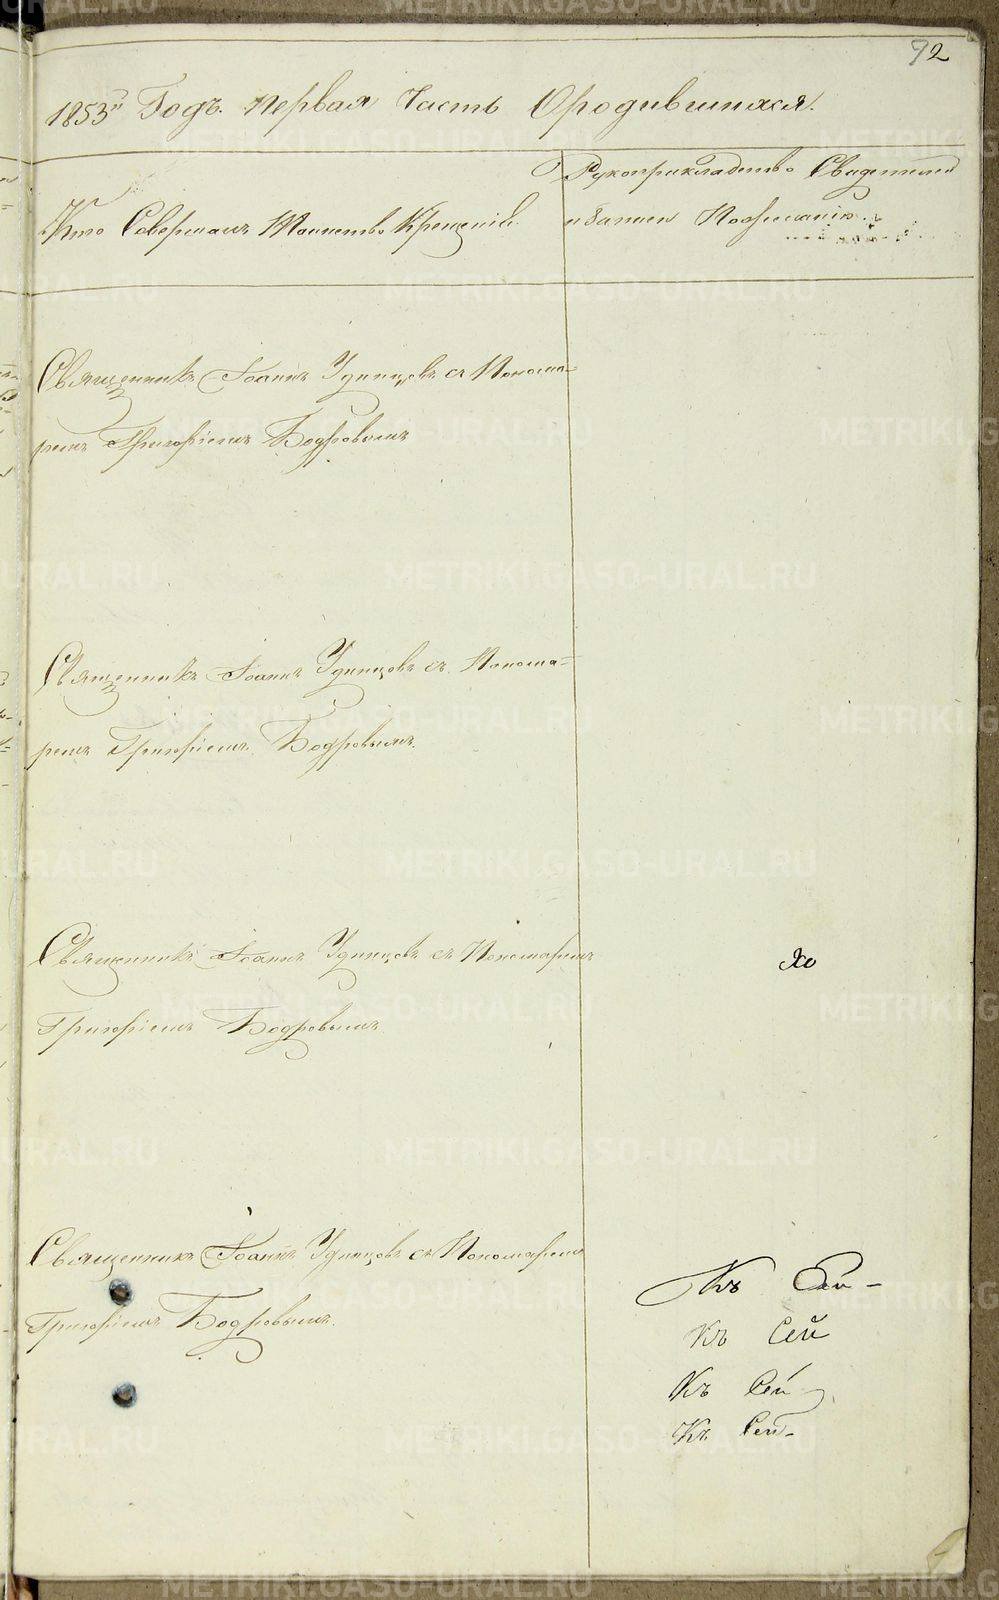 92
1853й Годъ. Первая Часть О родившихся.
Кто Совершалъ Таинство Крещенія
Рукоприкладство Свидетелей
о записи По желанію.
Священникъ Іоаннъ Удинцовъ съ Понома=
ремъ Григоріемъ Бодровымъ
Священникъ Іоаннъ Удинцовъ съ Понома=
ремъ Григоріемъ Бодровымъ.
Священникъ Іоаннъ Удинцовъ съ Пономаремъ
Григоріемъ Бодровымъ
Священникъ Іоаннъ Удинцовъ съ Пономаремъ
Григоріемъ Бодровымъ.
Къ Сей
Къ Сей
Къ Сей
Къ Сей
METRIKI.GASO-URAL.RU